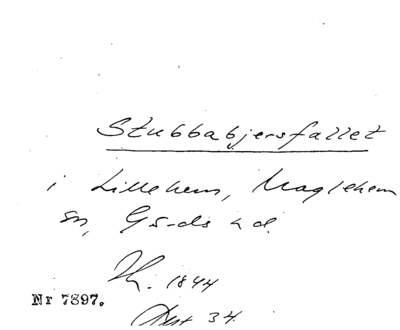 Stubbabjersfallet
i Lillehem, Maglehem
sn, Gärds hd.
1844
Nr 7897.
34